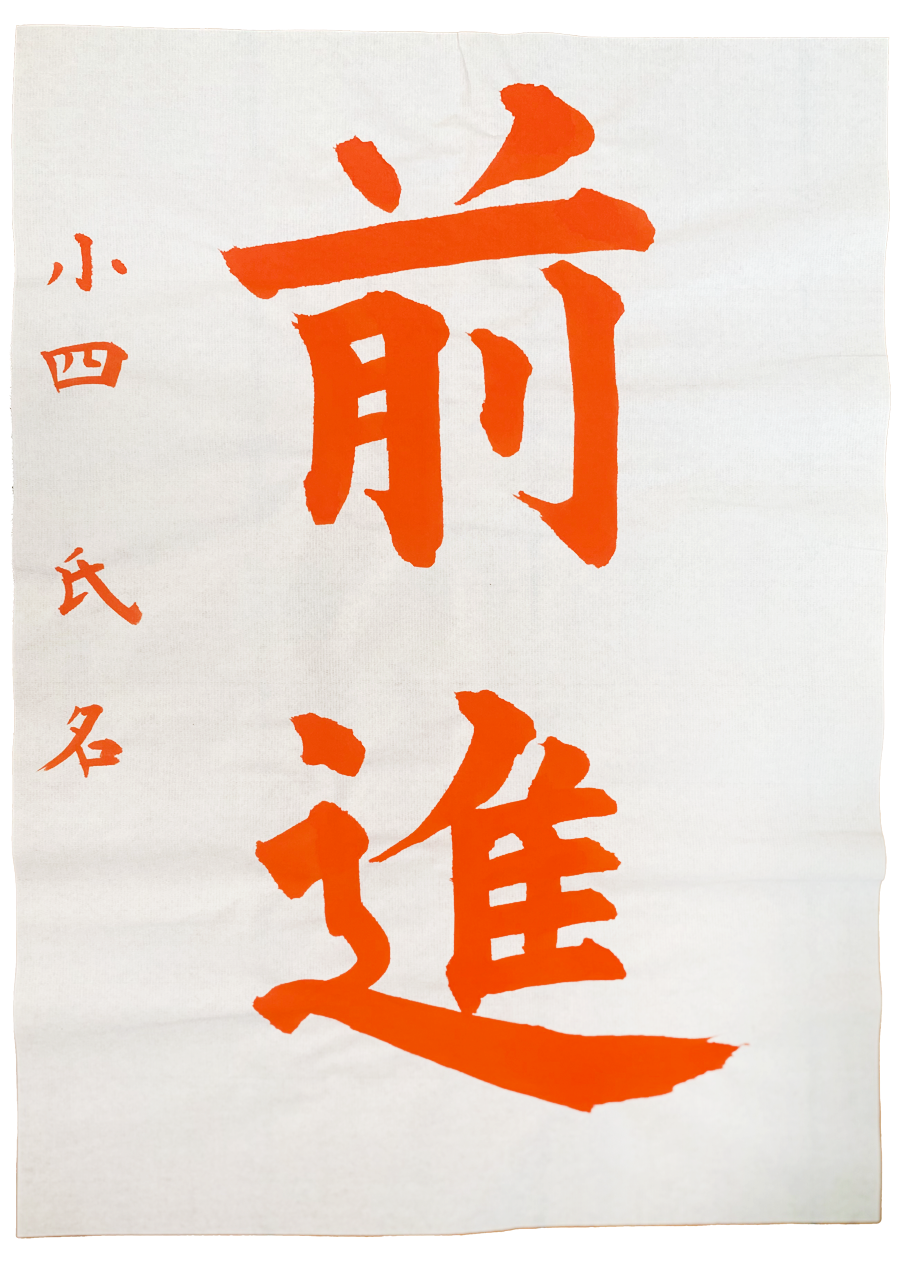 前進
小四 氏名